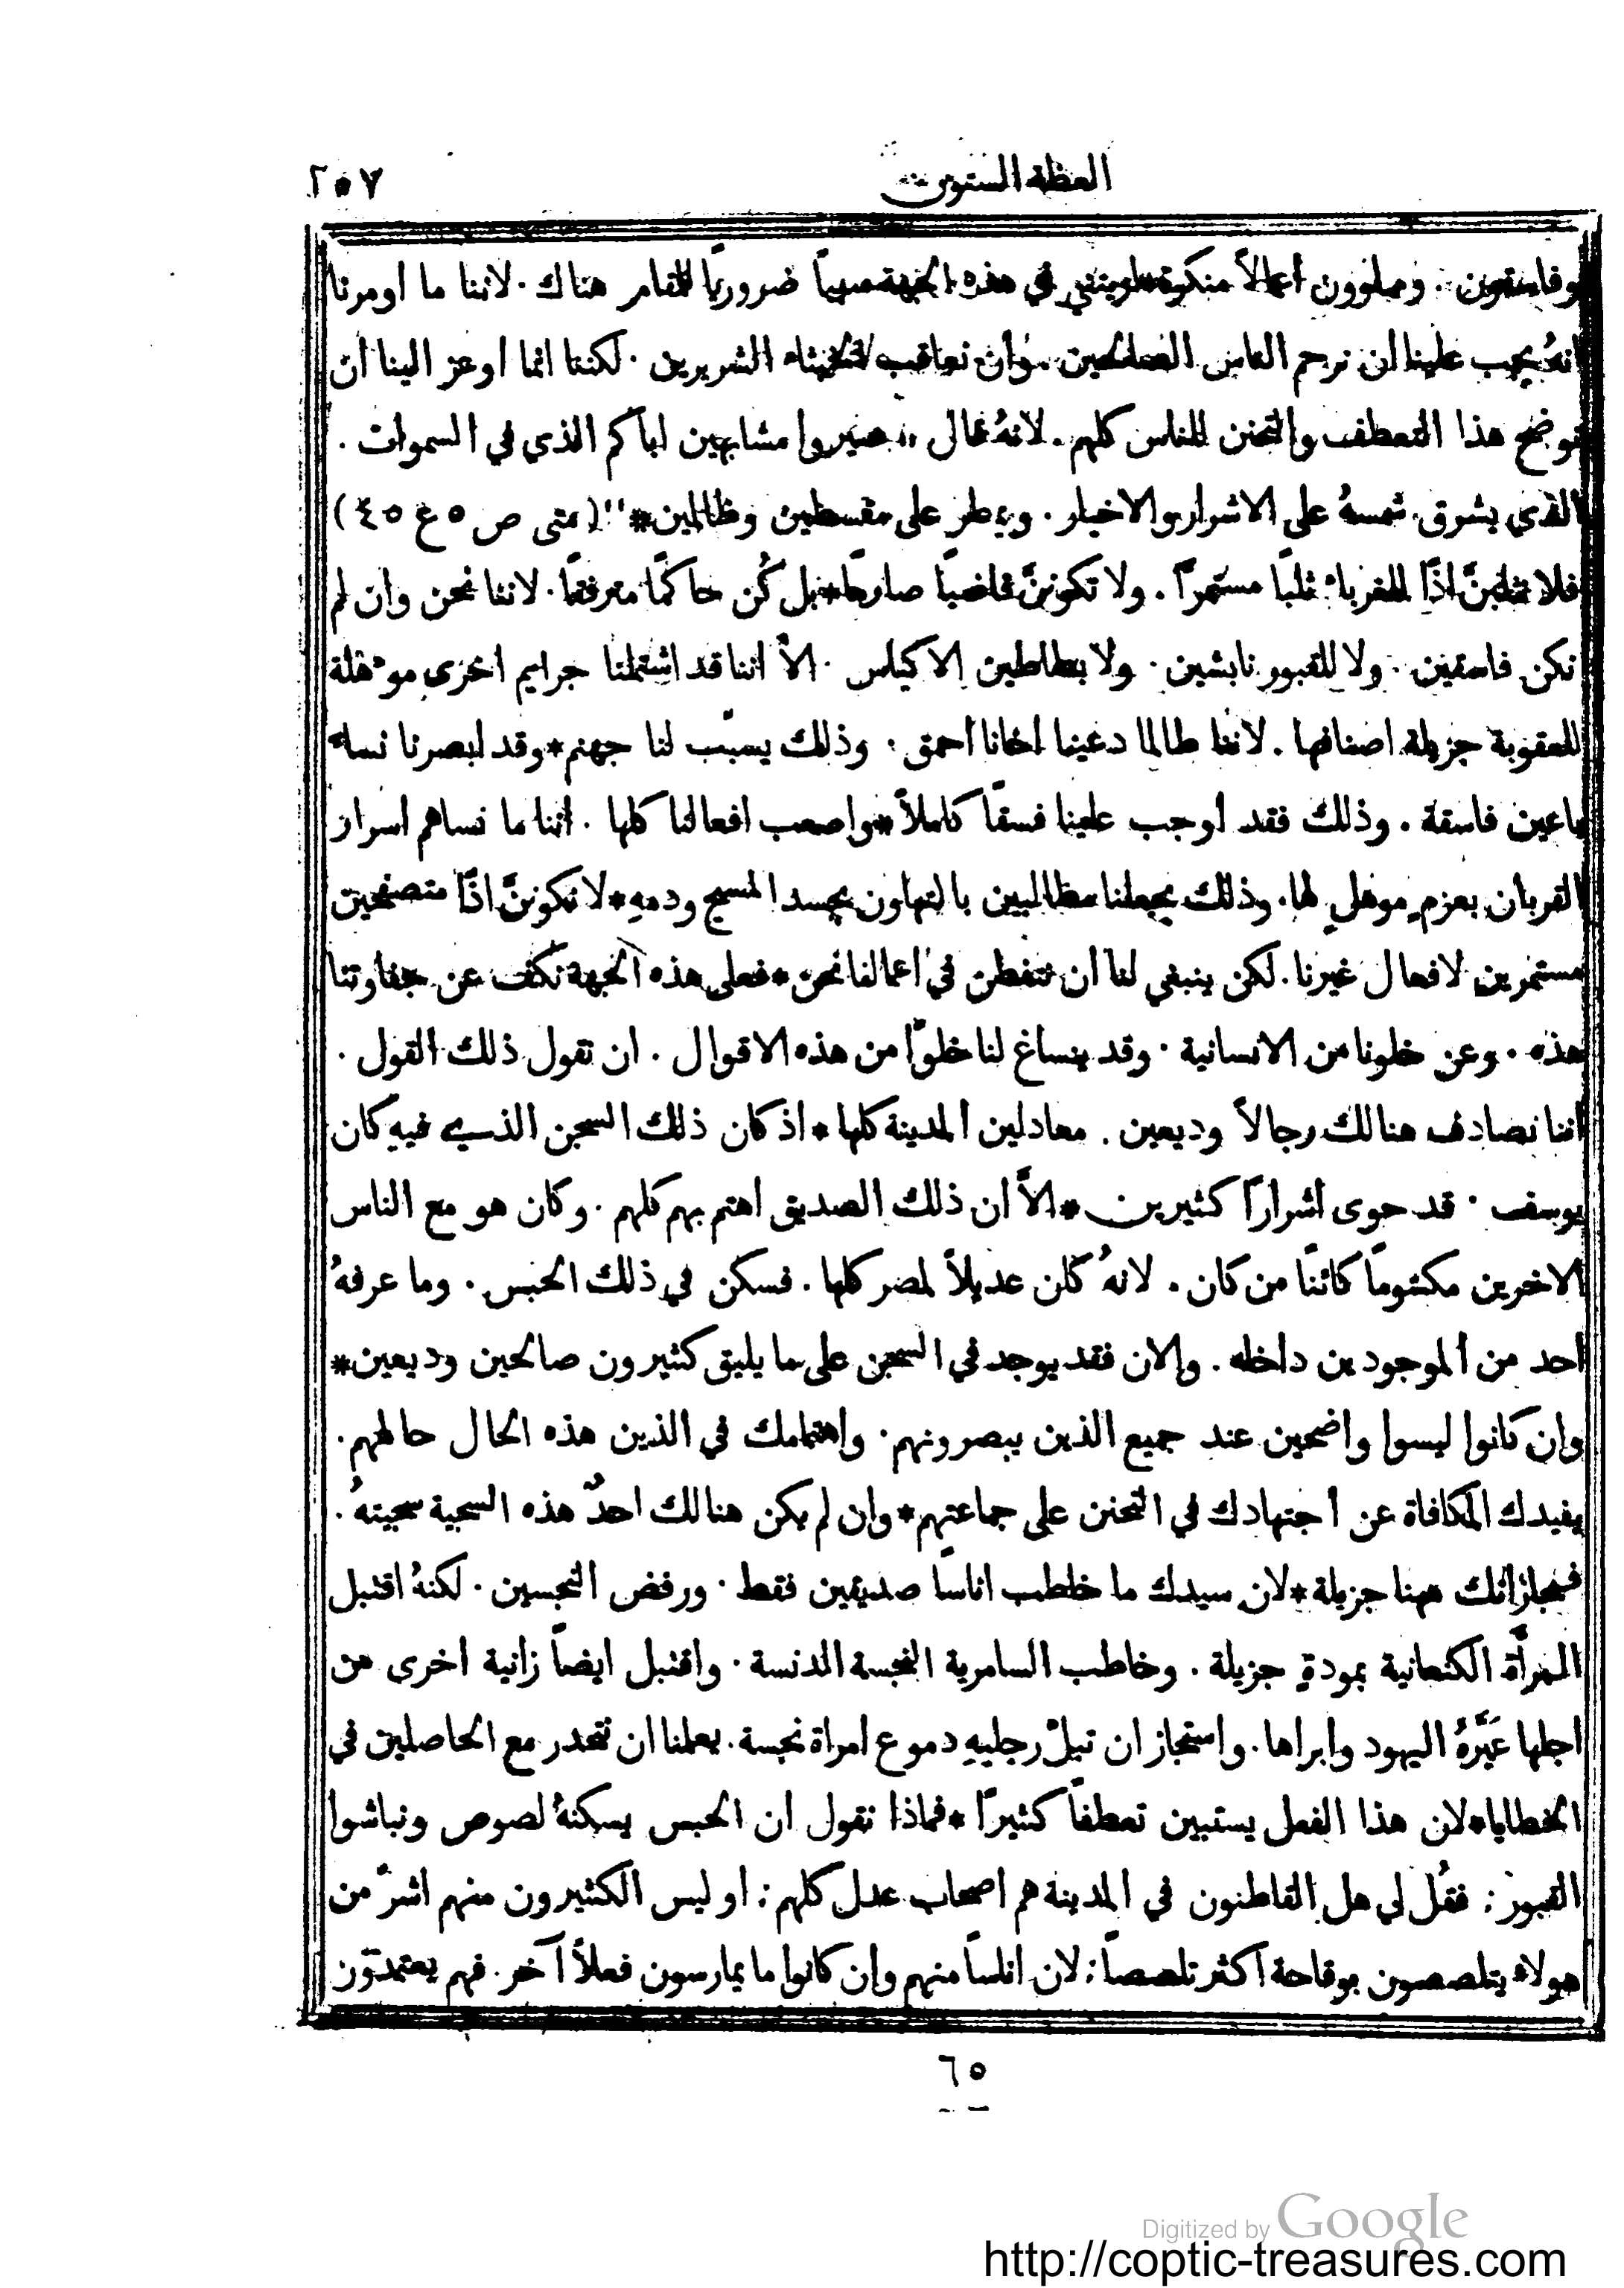 العظة الستون ٢٥٧
وفاسقون . ومملوون أعمالاً منكرة في هذه الجهة سبباً ضرورياً للمقام هناك . لاننا ما اومرنا
انهُ يجب علينا ان نرحم الناس الصالحين . وان نعاقب الخبثاء الشريرين . لكننا انما اوعز الينا ان
نوضح هذا التعطف والتحنن للناس كلهم . لانهُ قال ،، صيروا مشابهين اباكم الذي في السموات .
الذي يشرق شمسهُ على الاشرار والاخيار . ويمطر على مقسطين وظالمين*'' (متى ص ٥ ع ٤٥)
فلا تثلبنَّ اذًا للغرباء ثلبًا مستمرًا . ولا تكوننَّ قاضيًا صارمًا*بل كُن حاكمًا مترفقًا . لاننا نحن وان لم
نكن فاسقين . ولا للقبور نابشين . ولا بطاطين الاكياس . الاَّ اننا قد اشتملنا جرايم اخرى موءهلة
للعقوبة جزيلة اصنافها . لاننا طالما دعينا اخانا احمق . وذلك يسبّب لنا جهنم*وقد ابصرنا نساءً
باعين فاسقة . وذلك فقد أوجب علينا فسقًا كاملاً*واصعب افعالنا كلها . اننا ما نساهم اسرار
القربان بعزمٍ موهلٍ لها . وذلك يجعلنا مطالبين بالتهاون بجسد المسيح ودمهِ*لا نكوننَّ اذًا متصفحين
مستمرين لافعال غيرنا . لكن ينبغي لنا ان نتفطن في اعمالنا نحن*فعلى هذه الجهة نكف عن جفاوتنا
هذه . وعن خلونا من الانسانية . وقد ينساغ لنا خلوًّا من هذه الاقوال . ان نقول ذلك القول .
اننا نصادف هنالك رجالاً وديعين . معادلين المدينة كلها*اذ كان ذلك السجن الذي فيهِ كان
يوسف . قد حوى اشرارًا كثيرين*الاَّ ان ذلك الصديق اهتم بهم كلهم . وكان هو مع الناس
الاخرين مكتومًا كائنًا من كان . لانهُ كان عديلاً لمصر كلها . فسكن في ذلك الحبس . وما عرفهُ
احد من الموجودين داخله . والان فقد يوجد في السجن على ما يليق كثيرون صالحين وديعين*
وان كانوا ليسوا واضحين عند جميع الذين يبصرونهم . واهتمامك في الذين هذه الحال حالهم .
يفيدك المكافاة عن اجتهادك في التحنن على جماعتهم*وان لم يكن هنالك احدٌ هذه السجية سجيتهُ .
فمجازاتك ههنا جزيلة*لان سيدك ما خاطب اناسًا صديقين فقط . ورفض النجسين . لكنهُ اقتبل
المرأَة الكنعانية بمودةٍ جزيلة . وخاطب السامرية النجسة المدنسة . واقتبل ايضاً زانية اخرى من
اجلها عَيَّرهُ اليهود وابراها . واستجاز ان تبلّ رجليهِ دموع امراة نجسة . يعلمنا ان نتحدر مع الحاصلين في
الخطايا*لان هذا الفعل يستبين تعطفاً كثيرًا*فماذا نقول ان الحبس يسكنهُ لصوص ونباشوا
القبور ؛ فقُل لي هل القاطنون في المدينة هم اصحاب عدل كلهم ؛ او ليس الكثيرون منهم اشرّ من
هولاءِ يتلصصون بوقاحة اكثر تلصصاً ؛ لان اناساً منهم وان كانوا ما يمارسون فعلاً آخر . فهم يعتمدّون
٦٥
Digitized by Google
http://coptic-treasures.com